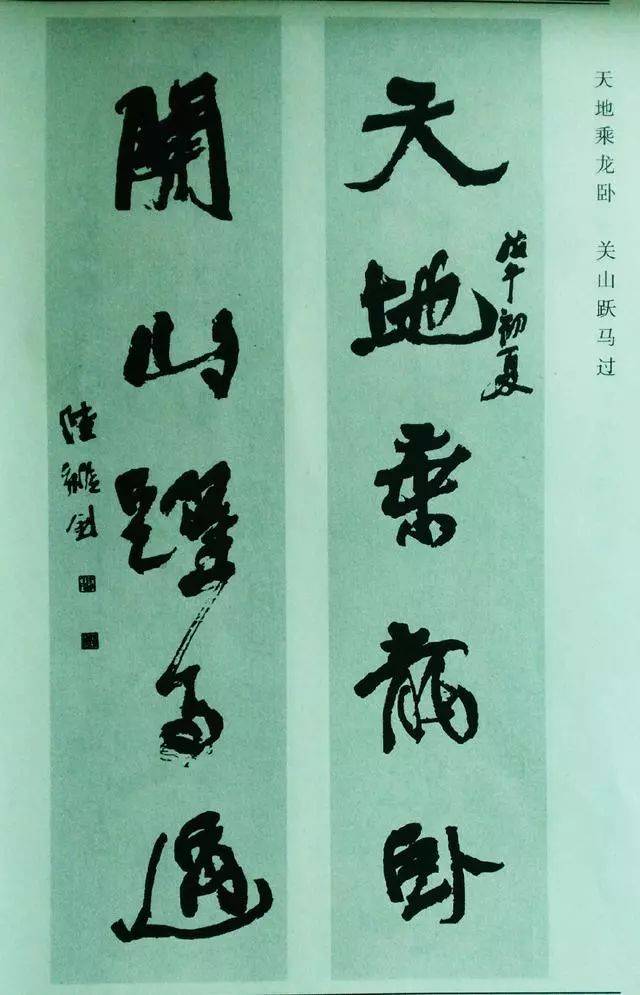 天地乘龙卧　关山跃马过
天地乘龍卧
戊午初夏
關山躍馬過
陸維釗